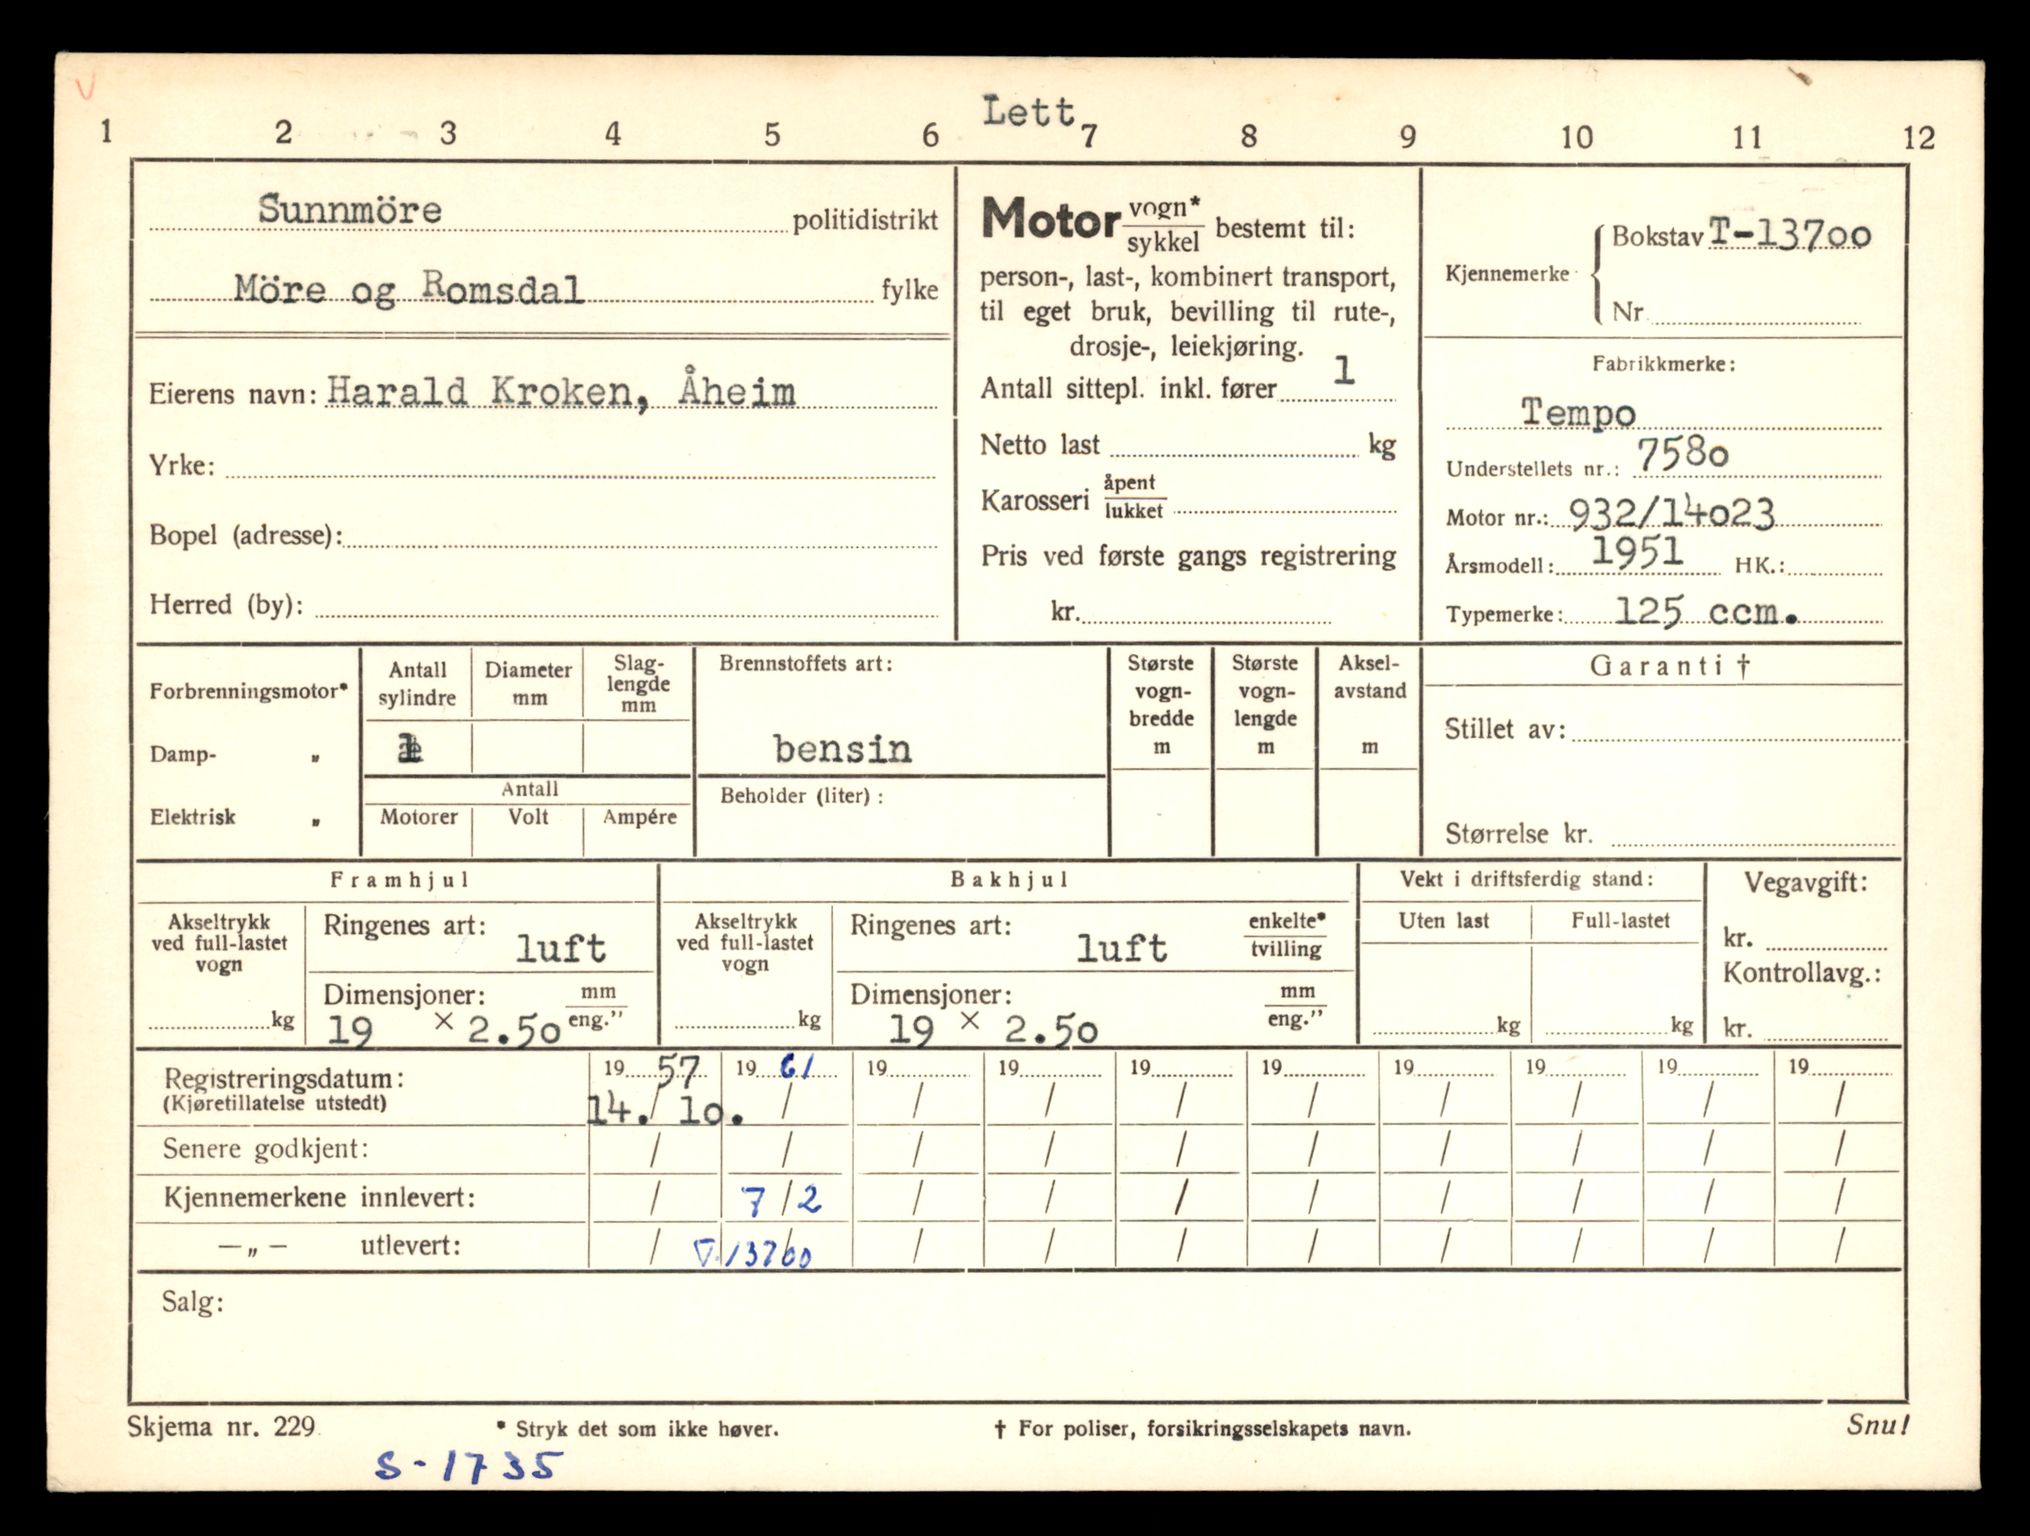 Lett
1 2 3 4 5 6 7 8 9 10 11 12
Sunnmöre politidistrikt
Möre og Romsdal fylke
Eierens navn: Harald Kroken, Åheim
Yrke:
Bopel (adresse):
Herred (by):
Motor vogn* sykkel bestemt til:
person-, last-, kombinert transport,
til eget bruk, bevilling til rute-,
drosje-, leiekjøring.
Antall sittepl. inkl. fører 1
Netto last kg
Karosseri åpent lukket
Pris ved første gangs registrering
kr.
Kjennemerke
Bokstav T-13700
Nr
Fabrikkmerke:
Tempo
Understellets nr.: 7580
Motor nr.: 932/14023
Årsmodell: 1951 HK.:
Typemerke: 125 ccm.
Forbrenningsmotor*
Damp- „
Elektrisk „
Antall sylindre
Diameter mm
Slag-
lengde
mm
1
Antall
Motorer Volt Ampére
Brennstoffets art:
bensin
Beholder (liter) :
Største
vogn-
bredde
m
Største
vogn-
lengde
m
Aksel-
avstand
m
Garanti †
Stillet av:
Størrelse kr.
Framhjul
Akseltrykk
ved full-lastet
vogn
kg
Ringenes art:
luft
Dimensjoner: mm eng."
19 × 2.50
Bakhjul
Akseltrykk
ved full-lastet
vogn
kg
Ringenes art: enkelte* tvilling
luft
Dimensjoner: mm eng."
19 × 2.50
Vekt i driftsferdig stand:
Uten last Full-lastet
kg kg
Vegavgift:
kr.
Kontrollavg.:
kr.
Registreringsdatum: 19 57 19 61 19 19 19 19 19 19 19 19
(Kjøretillatelse utstedt) 14. / 10. / / / / / / / / /
Senere godkjent: / / / / / / / / / /
Kjennemerkene innlevert: / 7/2 / / / / / / / /
— „ — utlevert: / T.13700 / / / / / / / /
Salg:
Skjema nr. 229
* Stryk det som ikke høver.
† For poliser, forsikringsselskapets navn.
Snu!
S-1735